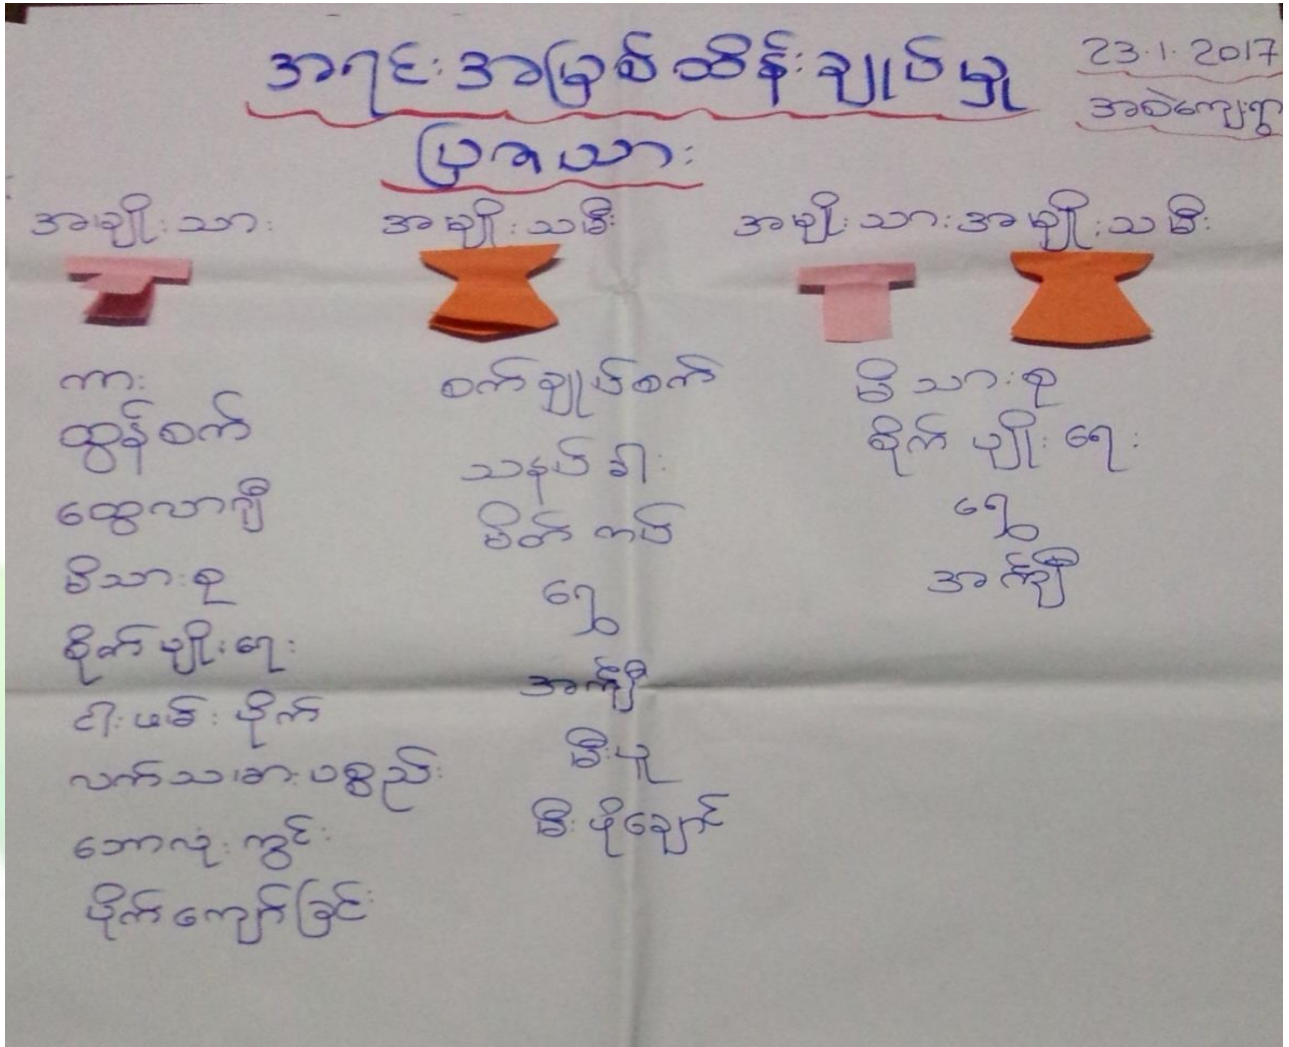 အရင်းအမြစ်ထိန်းချုပ်မှု
ပြဇယား
23.1.2017
အစဲကျေးရွာ
အမျိုးသား
ကား
ထွန်စက်
ထွေလာဂျီ
မိသားစု
စိုက်ပျိုးရေး
ငါးဖမ်းပိုက်
လက်သမားပစ္စည်း
ဘောလုံးကွင်း
ပိုက်ကျော်ခြင်း
အမျိုးသမီး
စက်ချုပ်စက်
သနပ်ခါး
မိတ်ကပ်
ရွှေ
အင်္ကျီ
မီးပူ
မီးဖိုချောင်
အမျိုးသားအမျိုးသမီး
မိသားစု
စိုက်ပျိုးရေး
ရွှေ
အင်္ကျီ